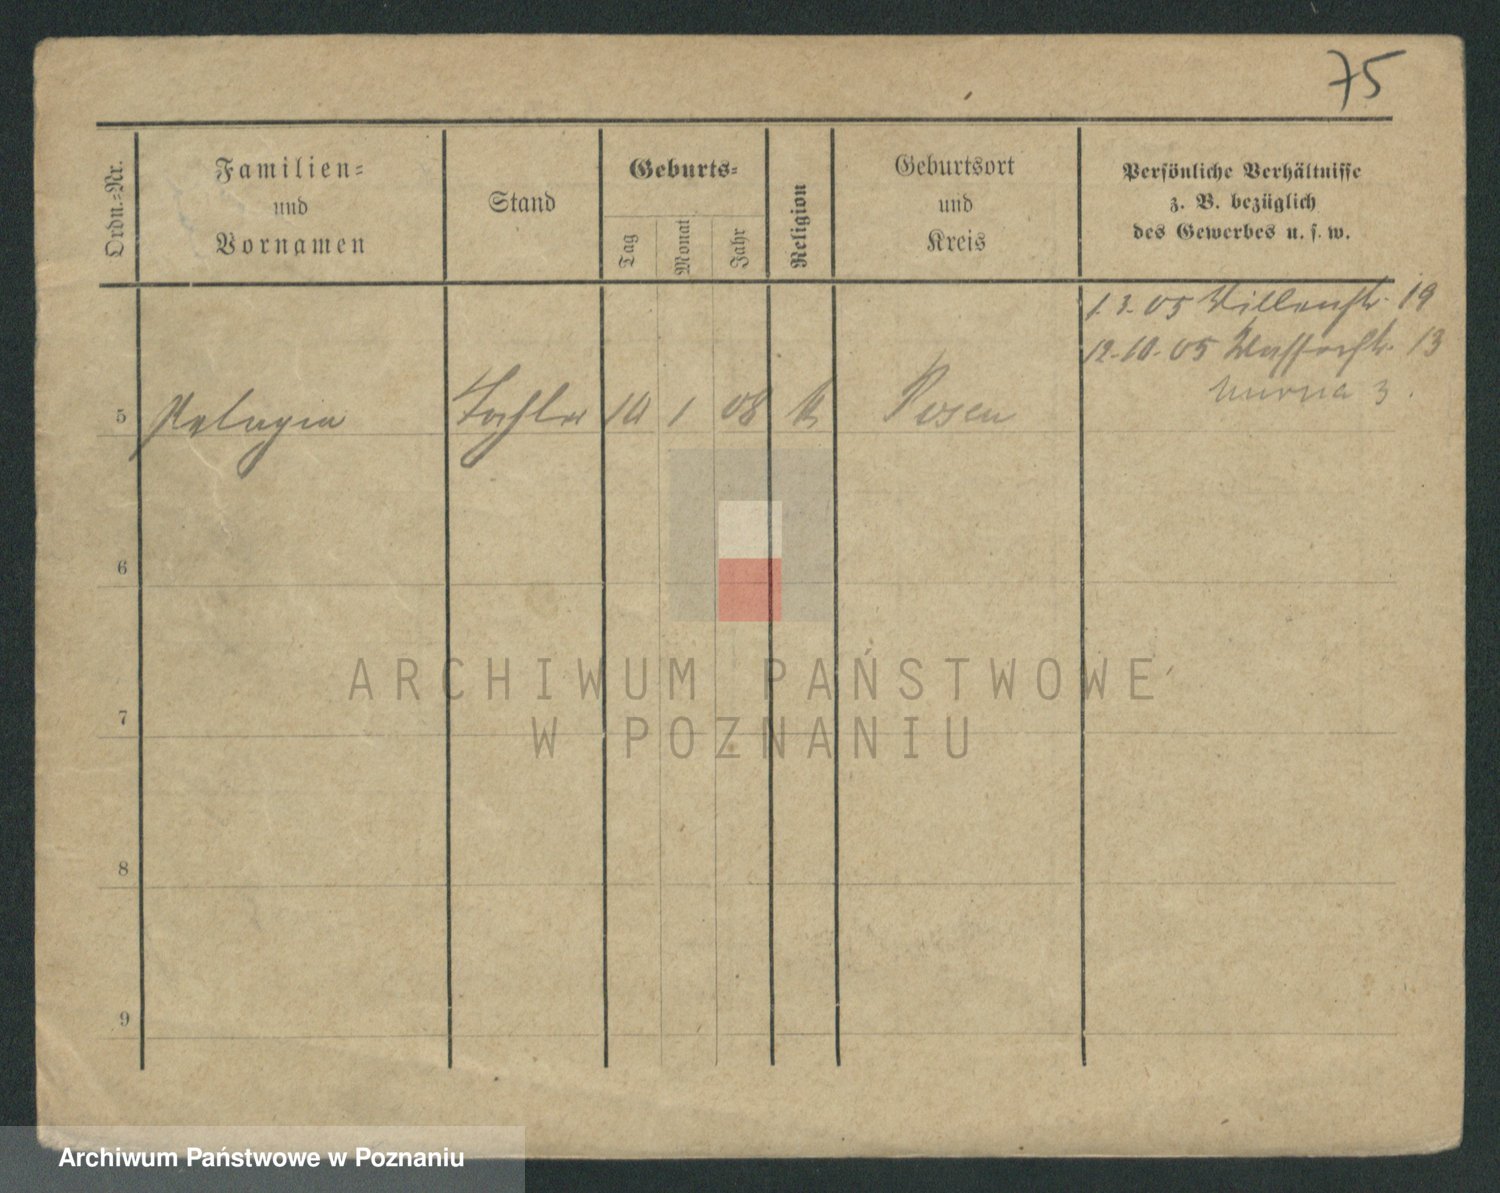 75
Ordn.-Nr.
Familien-
und
Vornamen
Stand
Geburts-
Tag
Monat
Jahr
Religion
Geburtsort
und
Kreis
Persönliche Verhältnisse
z. B. bezüglich
des Gewerbes u. s. w.
1.3.05 Villenstr. 19
12.10.05 Wasserstr. 13
murna 3.
5 Pelagia Tochter 10 1 08 k Posen
6
7
8
9
ARCHIWUM PAŃSTWOWE
W POZNANIU
Archiwum Państwowe w Poznaniu